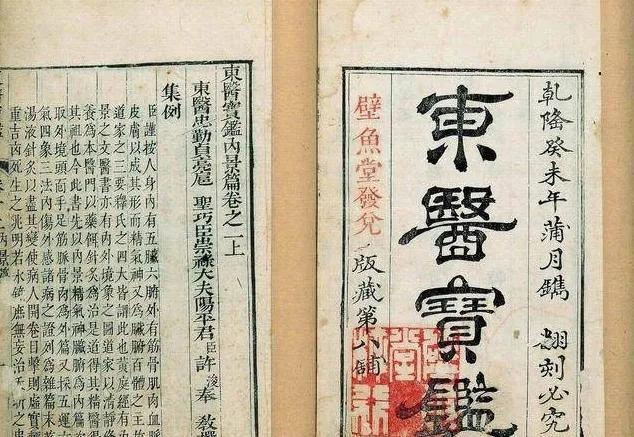 乾隆癸未年蒲月鐫 翻刻必究
東醫寶鑑
壁魚堂發兌
版藏第八舖
東醫寶鑑內景篇卷之一上
東醫忠勤貞亮扈 聖功臣崇祿大夫陽平君臣許浚奉 敎撰
集例
臣謹按人身內有五臟六腑外有筋骨肌肉血脈
皮膚以成其形而精氣神又爲臟腑百體之主故
道家之三要釋氏之四大皆謂此也黃庭經有內
景之文醫書亦有內外境象之圖道家以清靜修
養爲本醫門以藥餌鍼灸爲治是道得其精醫得
其粗也今此書先以內景精氣神臟腑爲內篇次
取外境頭面手足筋脈骨肉爲外篇又採五運六
氣四象三法內傷外感諸病之證列爲雜篇末著
湯液鍼灸以盡其變使病人開卷目擊則虛實輕
重吉凶死生之兆明若水鏡庶無妄治夭折之患